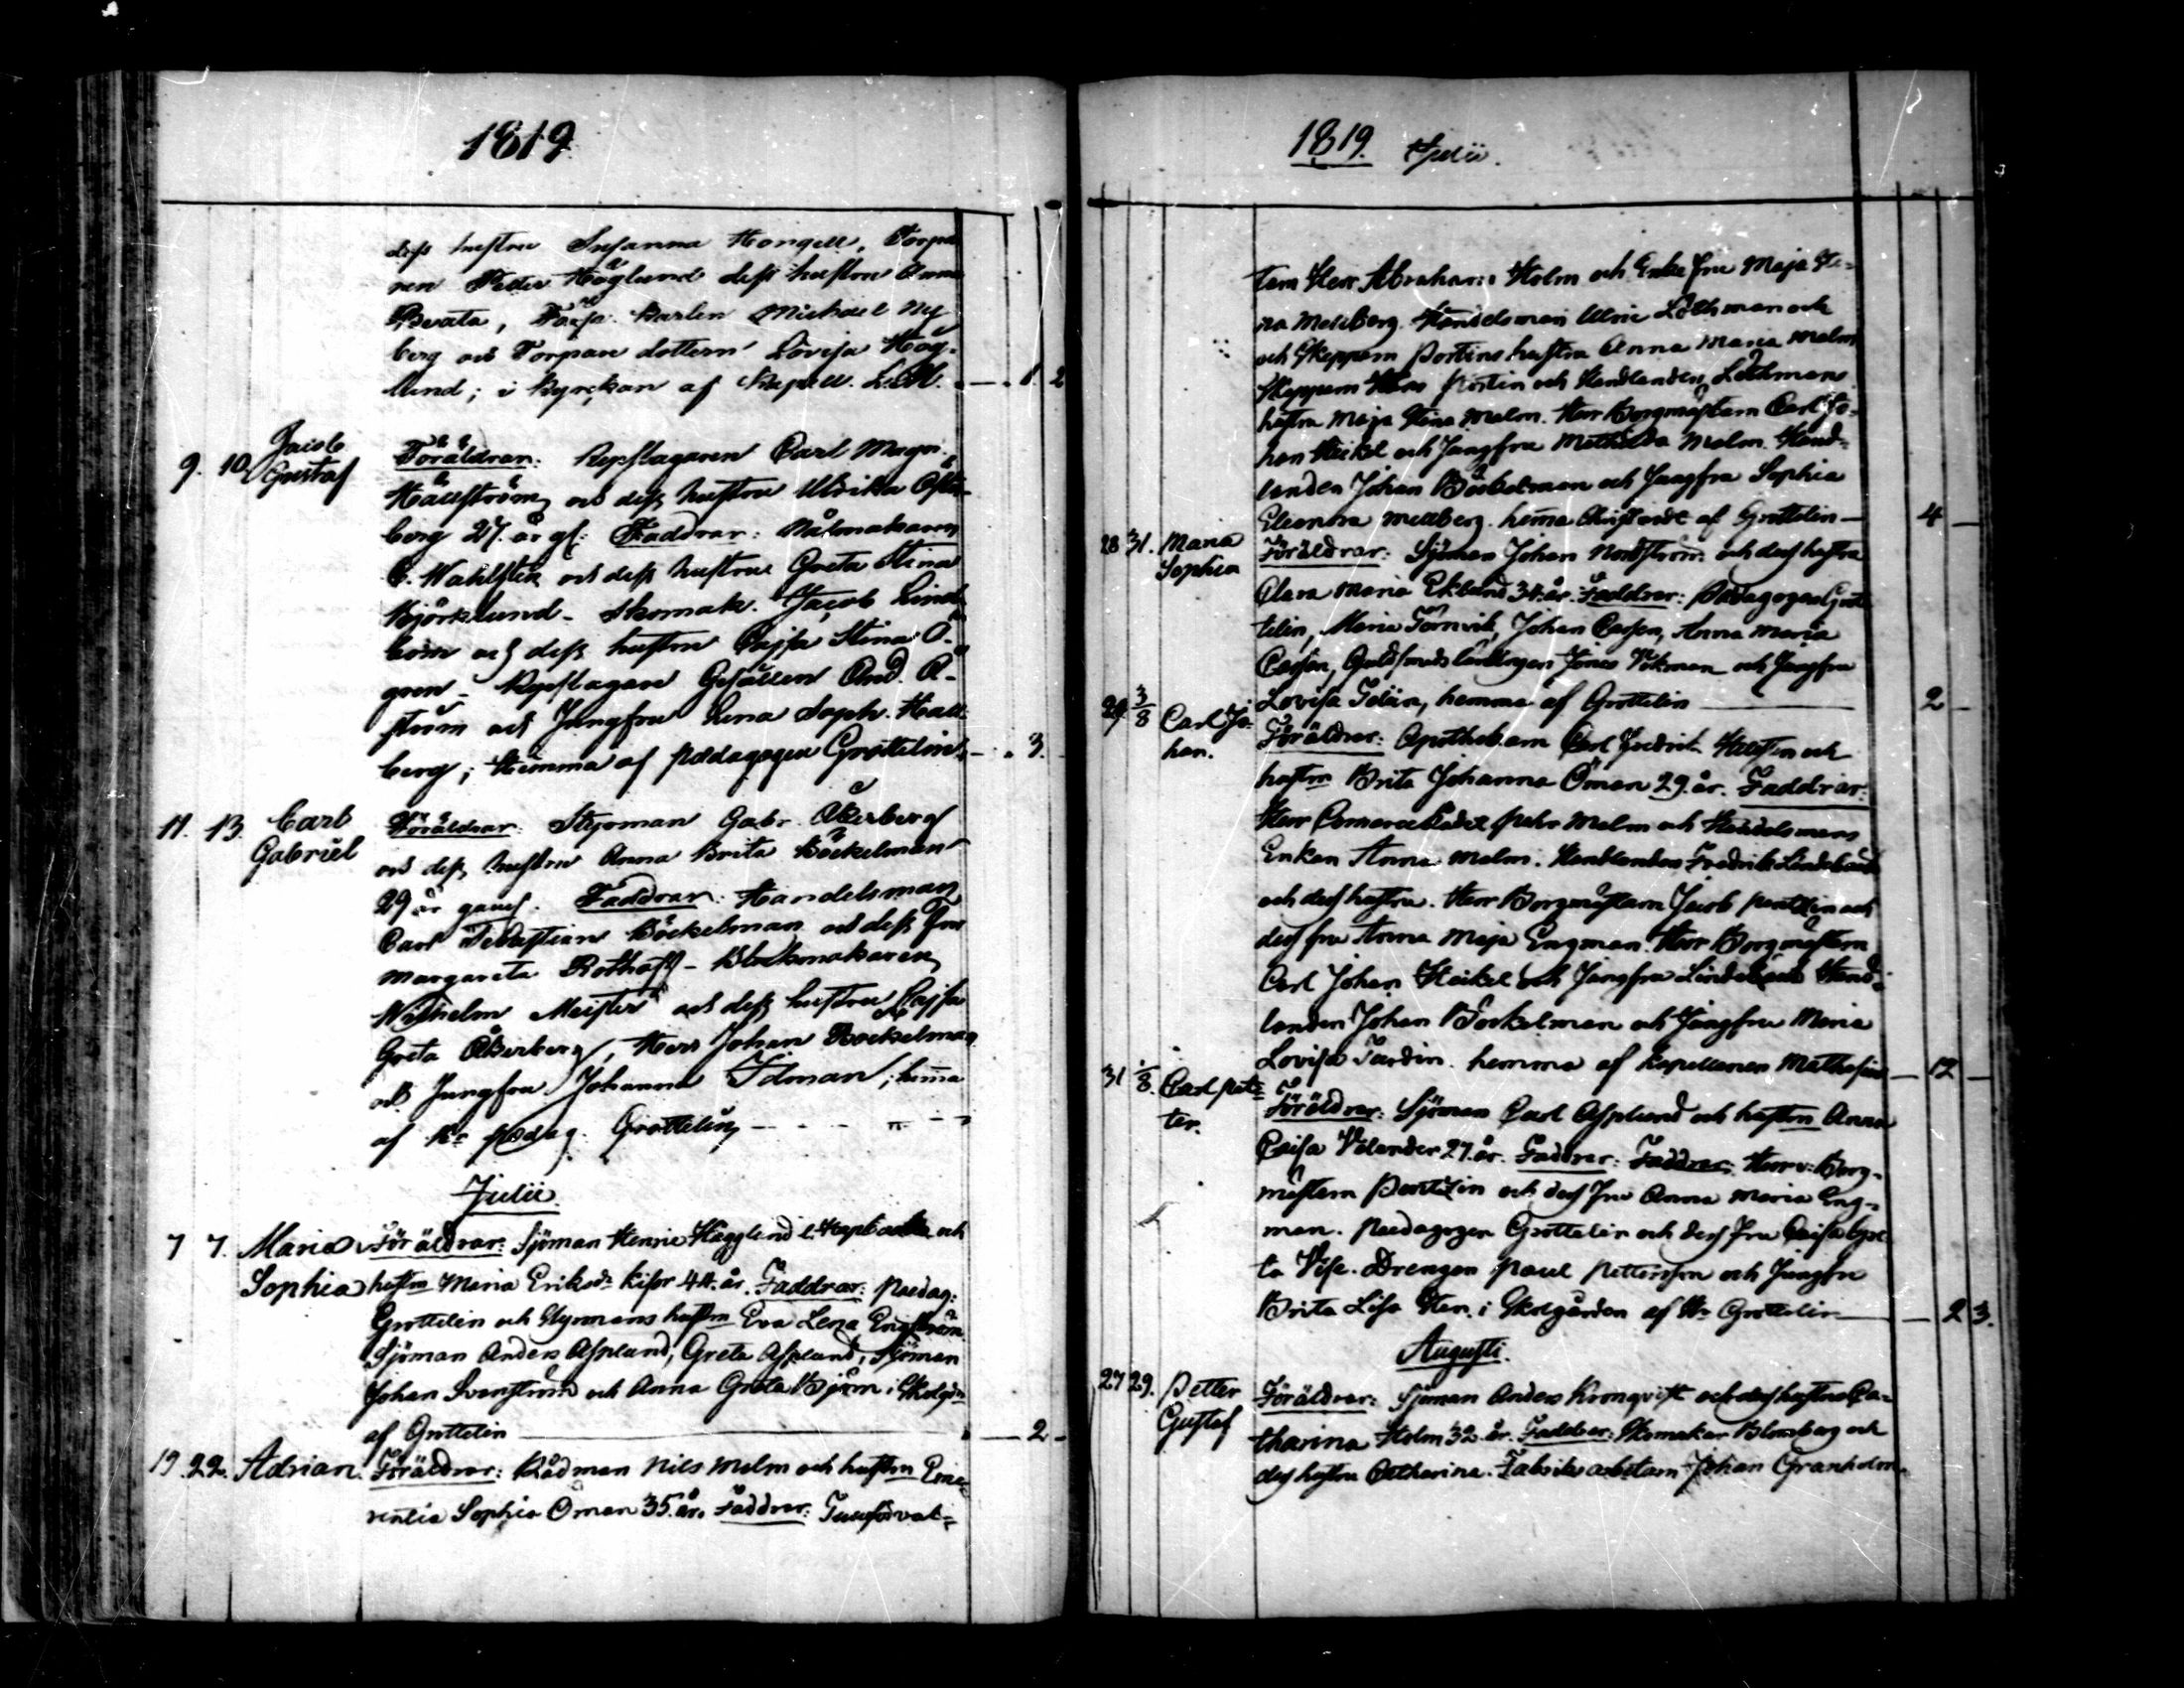 1819
dess hustru Susanna Hongell, Torpa
ren Petter Höglund dess hustru Anna
Beata, Karlen Michael Ny
berg och Torpare dottern Lovisa Hög-
lund; i Kyrckan af Kapell. 1. 2
9. 10. Jacob
Gustaf
Föräldrar: Repslagaren Carl Magn.
Hällström och dess hustru Ulrika Öster-
berg 27. år gl: Faddrar: Nålmakaren
C. Wahlsten och dess hustru Greta Stina
Björklund - Skomak. Jacob Lind-
bom och dess hustru Cajsa Stina Å-
gren - Repslagare Gesällen And. Å-
ström och Jungfru Lena Soph. Häll-
berg; Hemma af pædagogen Grottelin 3.
11. 13. Carl
Gabriel
Föräldrar: Styrman Gabr. Åkerberg
och dess hustru Anna Brita Böckelman
29 år gam. Faddrar: Handelsman
Carl Sebastian Böckelman och dess Fru
Margareta Rothåf - Blockmakaren
Wilhelm Meister och dess hustru Cajsa
Greta Åkerberg, Herr Johan Böckelman
och Jungfru Johanna Idman; hem̄a
af Hr pædag. Grottelin
Julii.
7 7. Maria
Sophia
Föräldrar: Sjöman Henric Hägglund och
hustru Maria Eriksdr 44. år. Faddrar: Paedag:
Grottelin och Styrmans hustru Eva Lena Engström
Sjöman Anders Asplund, Greta Asplund, Sjöman
Johan Svenström och Anna Greta Björn i Skolgn
af Grottelin 2
19. 22. Adrian.
Föräldrar: Rådman Nils Malm och hustru Eme-
rentia Sophia Öman 35. år. Faddrar: Tullförval-
1819. Julii.
tern Herr Abraham Holm och Enke fru Maja Sti-
na Mellberg. Handelsman Ulric Löthman och
och Skeppar Portins hustru Anna Maria Malm
Skeppern Portin och Handlanden Löthmans
hustru Maja Stina Malm. Herr Borgmästarn Carl Jo-
han Heikel och Jungfru Mathilda Malm. Hand-
landen Johan Böckelman och Jungfru Sophia
Eleonora Mellberg. hem̄a Christnadt af Grottelin 4
28 31. Maria
Sophia
Föräldrar: Sjöman Johan Nordström och dess hustru
Clara Maria Eklund 34. år. Faddrar: Pædagogen Grot-
telin, Maria Törnvik, Johan Carsen, Anna Maria
Carsen, Guldsmeds lärlingen Jonas Vikman och Jungfru
Lovisa Idean, hemma af Grottelin 2
29 3/8 Carl Jo-
han.
Föräldrar: Apothekarn Carl Fredrik Hellsten och
hustru Brita Johanna Öman 29. år. Faddrar:
Herr Commerce Rådet Pehr Malm och Handelsmans
Enkan Anna Malm. Handlanden Fredrik Lindskoug
och dess hustru. Herr Borgmästarn Jacob Pentzin och
dess fru Anna Maja Engman. Herr Borgmästarn
Carl Johan Heikel och Jungfru Lindskoug Hand-
landen Johan Böckelman och Jungfru Maria
Lovisa Jardin. hemma af Kapellanen Mathesius 12
31 1/8. Carl Pet-
ter.
Föräldrar: Sjöman Carl Asplund och hustru Anna
Caisa Velander 27. år. Faddrar: Faddrar: Herr v: Borg-
mästarn Pentzin och dess Fru Anna Maria Eng-
man. Paedagogen Grottelin och dess Fru Caisa Gre-
ta Vise. Drengen Paul Pettersson och Jungfru
Brita Lisa Sten. i Skolgården af Hr Grottelin 2 3.
Augusti.
27 29. Petter
Gustaf
Föräldrar: Sjöman Anders Kronqvist och dess hustru Ca-
tharina Holm 32. år. Faddrar: Skomakar Blomberg och
dess hustru Catharina. Fabriks arbetarn Johan Granholm